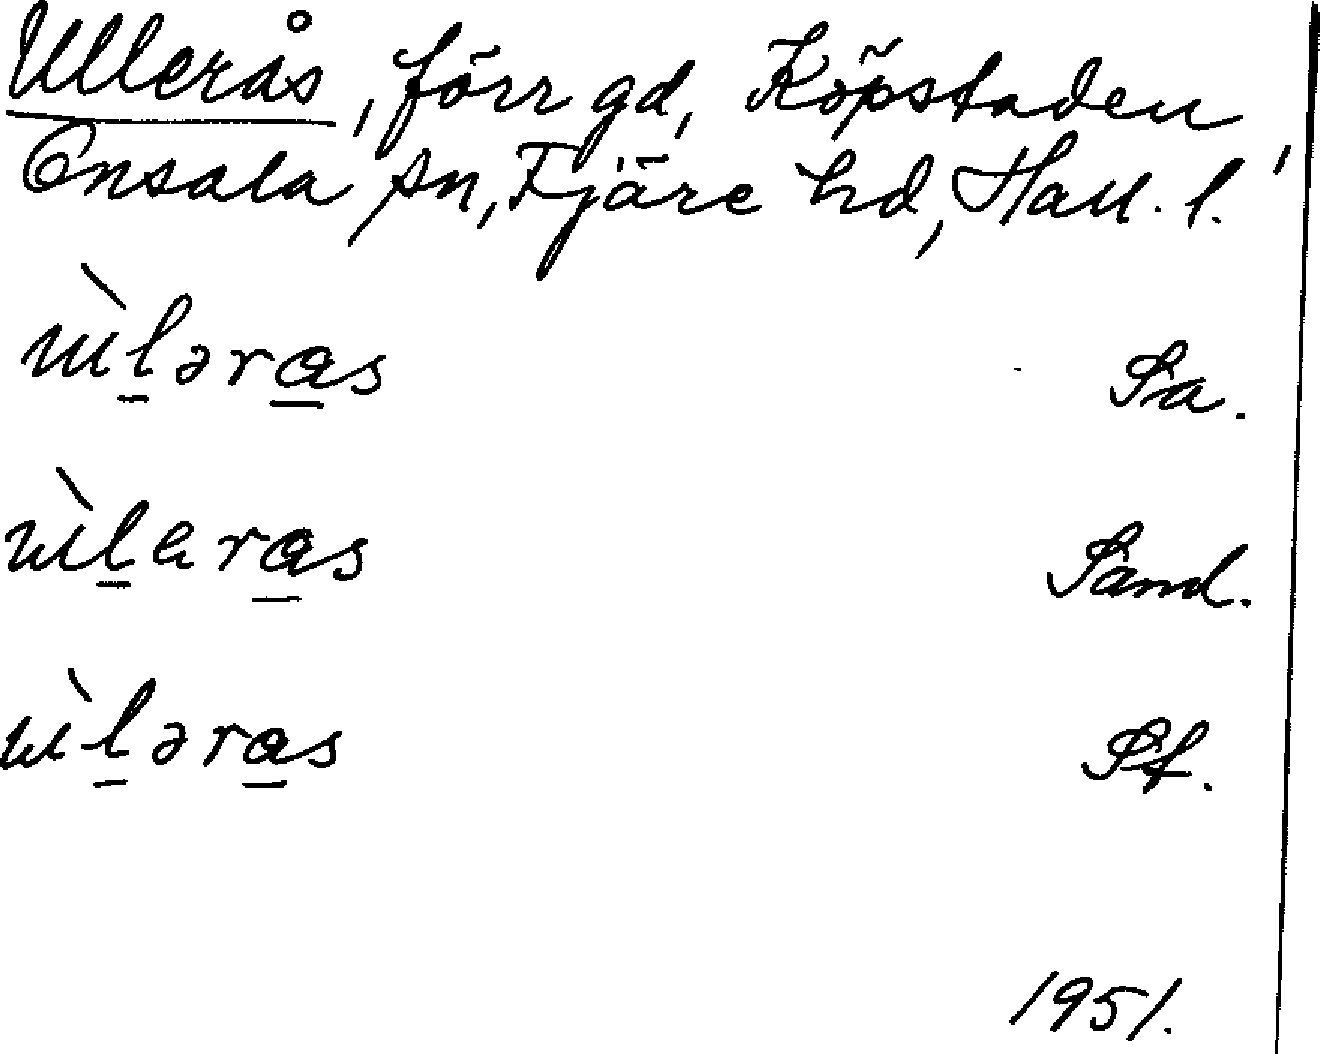 Ullerås, förr gd, Köpstaden,
Onsala sn, Fjäre hd, Hall. l.
ùl̲əra̲s Sa.
ùl̲ara̲s Sand.
ùl̲əra̲s Sf.
1951.